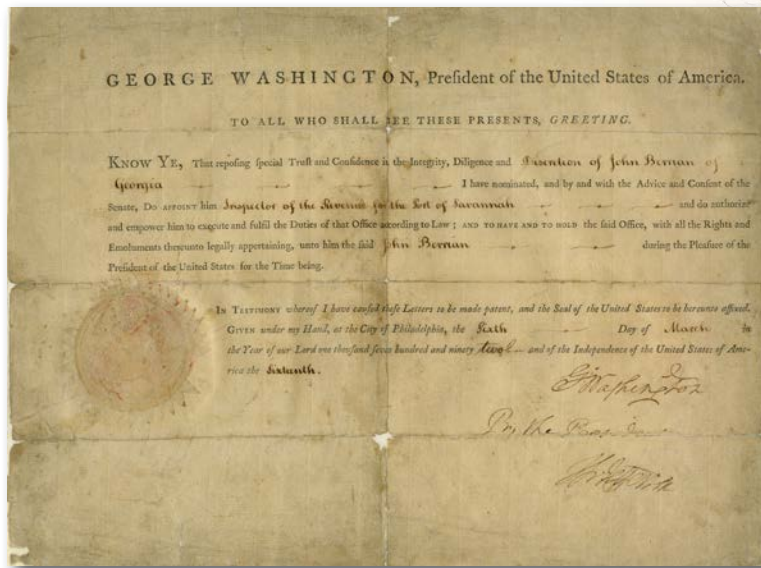 GEORGE WASHINGTON, Preſident of the United States of America.
TO ALL WHO SHALL SEE THESE PRESENTS, GREETING.
KNOW YE, That repoſing ſpecial Truſt and Confidence in the Integrity, Diligence and Diſcretion of John Berrian of
Georgia I have nominated, and by and with the Advice and Conſent of the
Senate, DO APPOINT him Inspector of the Revenue for the Port of Savannah and do authorize
and empower him to execute and fulfil the Duties of that Office according to Law; AND TO HAVE AND TO HOLD the ſaid Office, with all the Rights and
Emoluments thereunto legally appertaining, unto him the ſaid John Berrian during the Pleaſure of the
Preſident of the United States for the Time being.
IN TESTIMONY whereof I have cauſed theſe Letters to be made patent, and the Seal of the United States to be hereunto affixed.
GIVEN under my Hand, at the City of Philadelphia, the Sixth Day of March in
the Year of our Lord one thouſand ſeven hundred and ninety two and of the Independence of the United States of Ame-
rica the Sixteenth.
G Washington
By the President
Th Jefferson